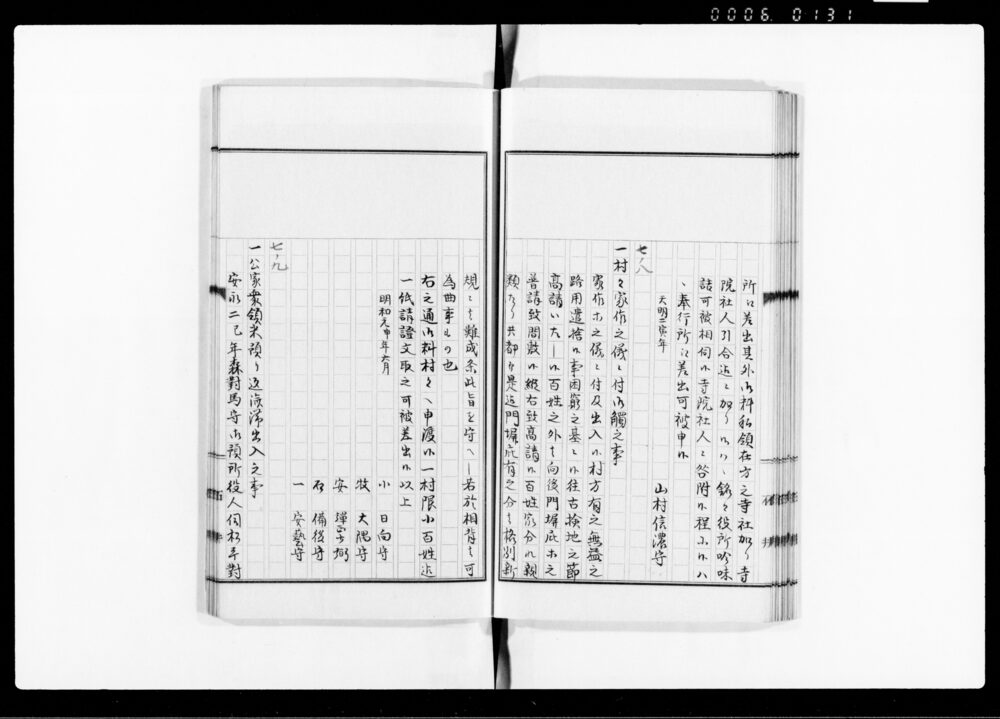 0006 0131
所江差出其外御料私領在方之寺社加り寺
院社人引合迄も加り
役所吟味
詰可被相伺候寺院社人も
附候程
奉行所江差出可被申候
天明二寅年
山村信濃守
七ノ八
一村々家作之儀ニ付御觸之事
家作ホ之儀ニ付及出入候村方有之無益之
路用遣捨候事困窮之基ニ候往古検地之節
高請い
百姓之外も向後門塀庇ホ之
普請致間敷候縦右致高請候百姓家分れ親
類たり共都而是迄門塀庇有之分も格別新
規ニも難成条此旨を守へし若於相背も可
為曲事もの也
右之通御料村々へ申渡候一村限小百姓迄
一紙請證文取之可被差出候以上
明和元申年六月
小 日向守
牧 大隅守
安 彈正少弼
石 備後守
一 安藝守
七ノ九
一公家衆領米預り返済滞出入之事
安永二巳年森對馬守御預所役人伺松平對